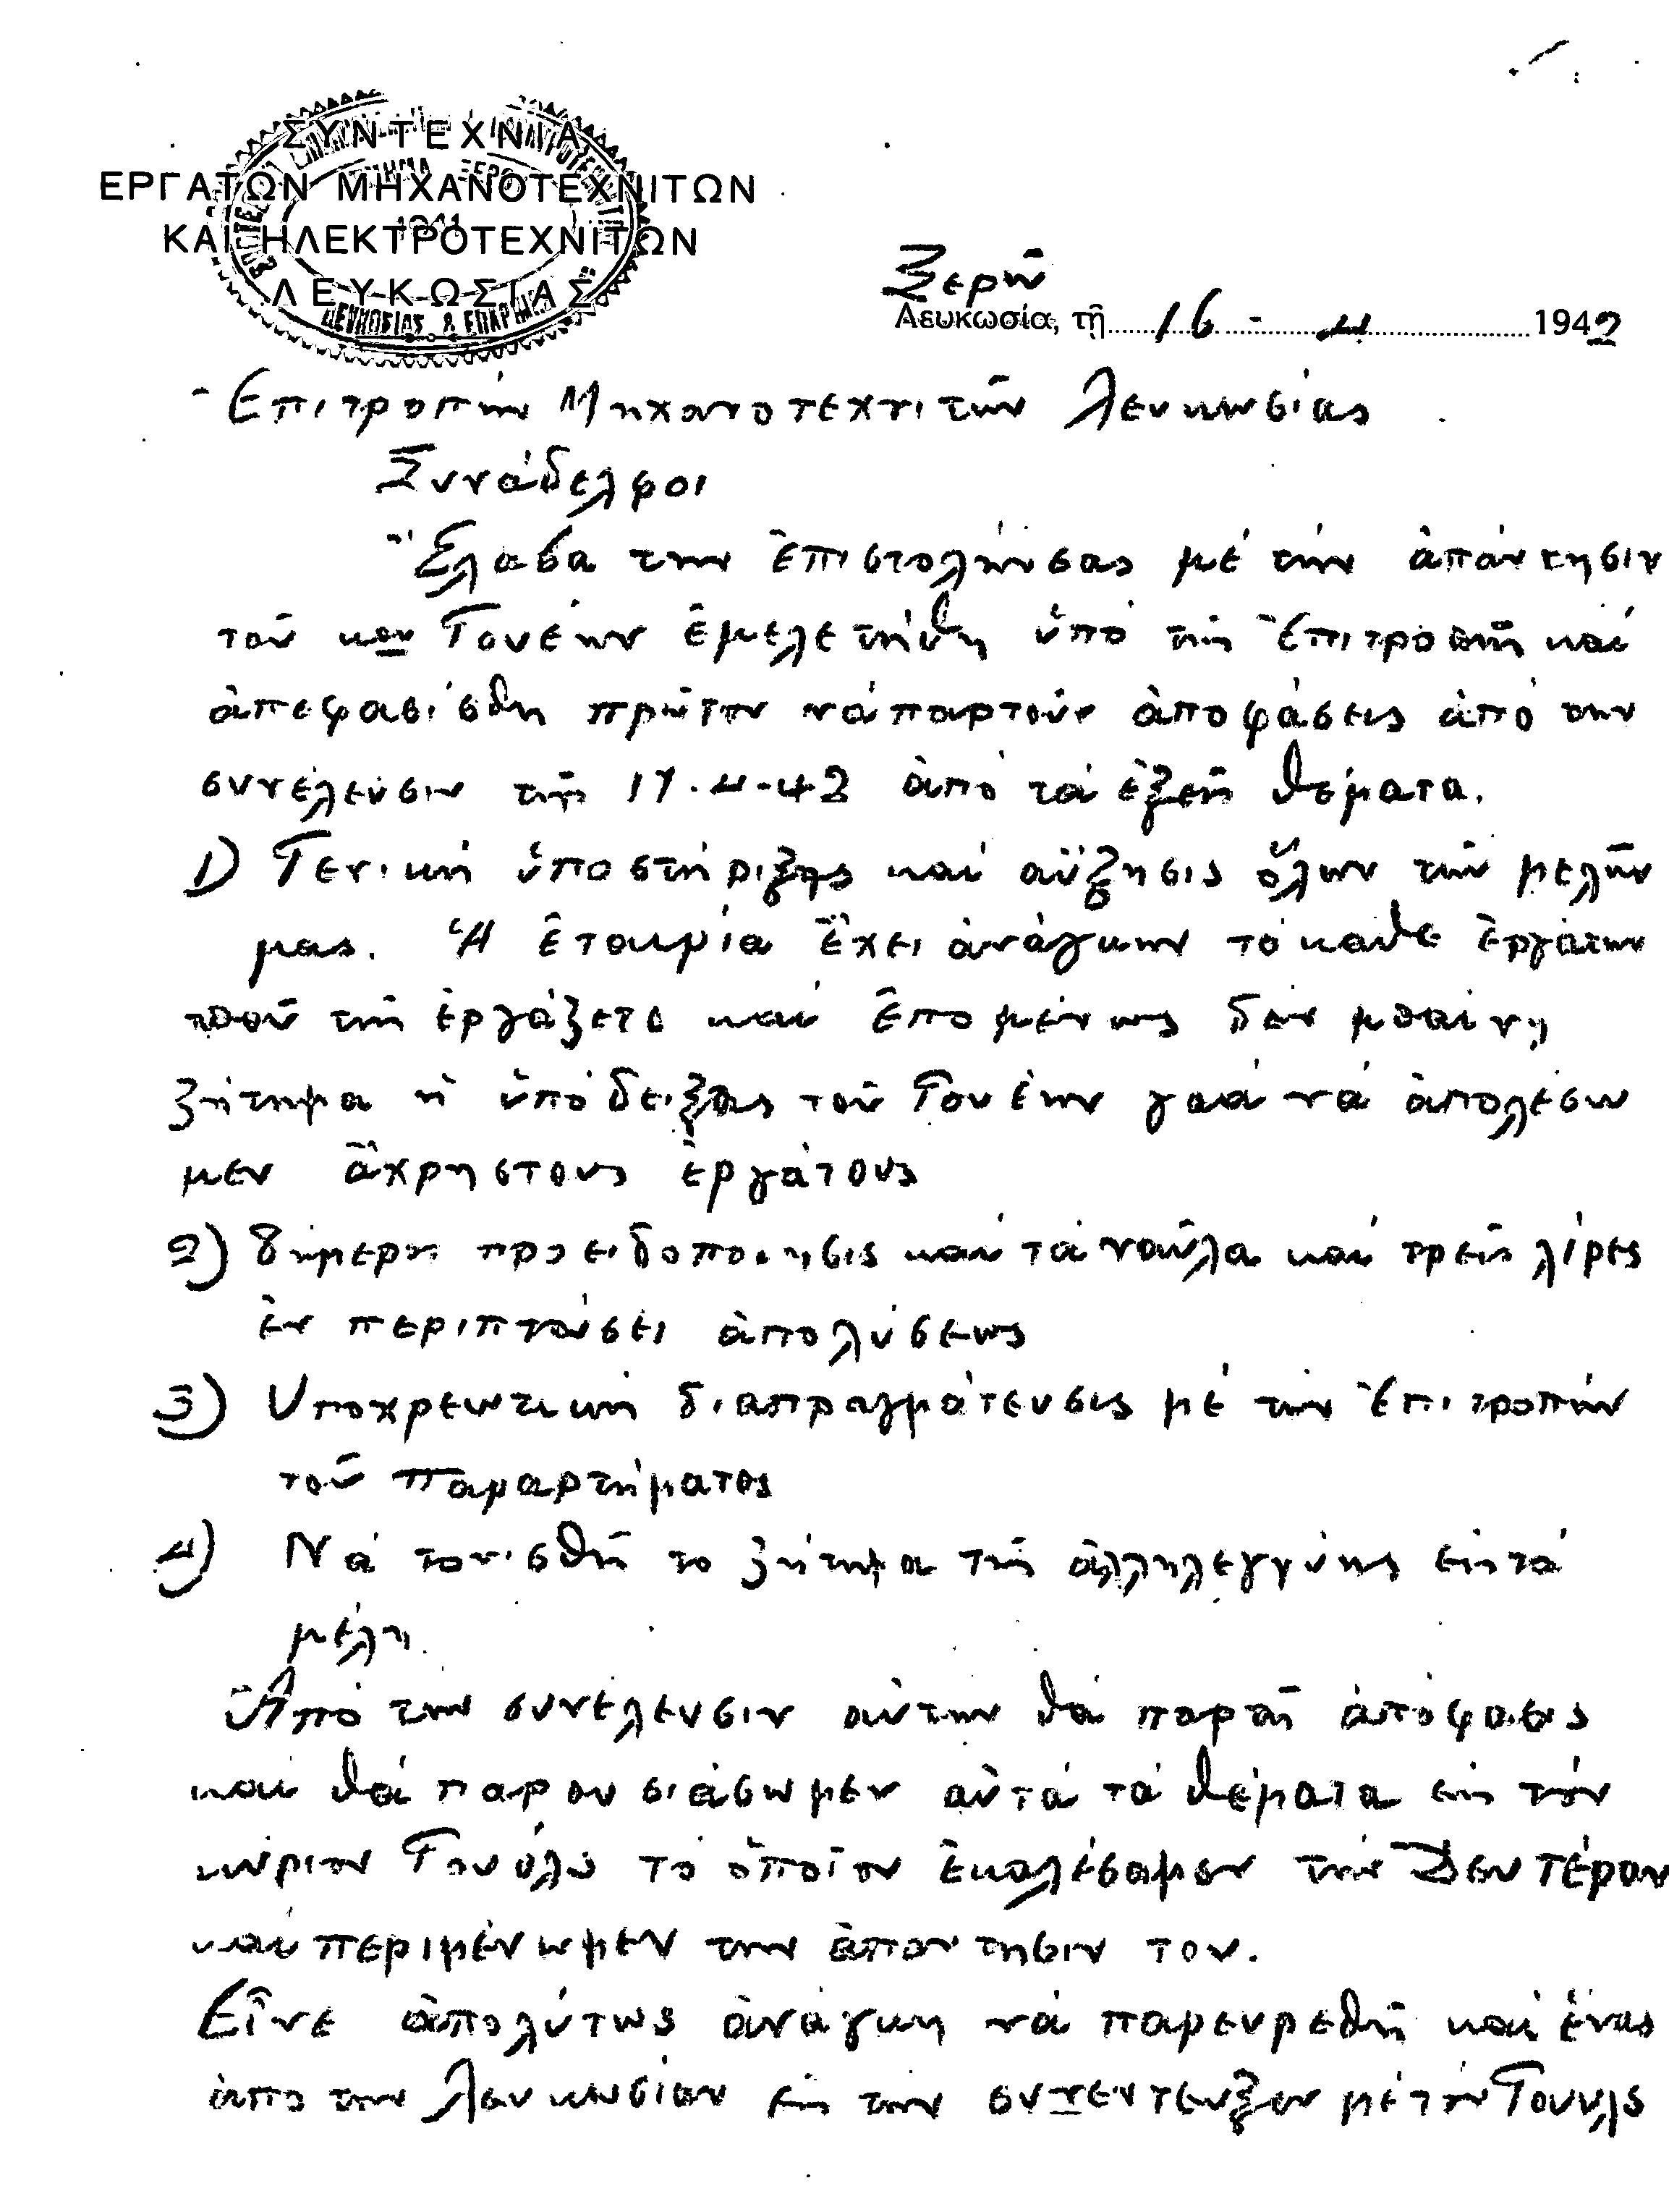 ΣΥΝΤΕΧΝΙΑ
ΕΡΓΑΤΩΝ ΜΗΧΑΝΟΤΕΧΝΙΤΩΝ
ΚΑΙ ΗΛΕΚΤΡΟΤΕΧΝΙΤΩΝ
ΛΕΥΚΩΣΙΑΣ
Ξερῶ
Λευκωσία, τῇ 16 - 4 1942
Ἐπιτροπήν Μηχανοτεχνιτῶν Λευκωσίας
Συνάδελφοι
Ἔλαβα την ἐπιστολήνσας μέ τήν ἀπάντησιν
τοῦ κου Γουέην ἐμελετήθη ὑπό τῆς Ἐπιτροπῆς καί
ἀπεφασίσθη πρῶτον νά παρτοῦν ἀποφάσεις ἀπό την
συνέλευσιν τῆς 17-4-42 ἀπό τά ἐξῆς θέματα.
1) Γενική ὑποστήριξης καί αὔξησις ὅλων τῶν μελῶν
μας. Ἡ ἑταιρία ἔχει ἀνάγκην τό καθε ἐργάτην
ποῦ τῆς ἐργάζετο καί ἑπομένως δέν μπαίνη
ζήτημα ἡ ὑπόδειξης τοῦ Γουέην γιά νά ἀπολέσω
μεν ἄχρηστους ἐργάτους
2) 8ήμερη προειδοποίησις καί τά ναῦλα καί τρεῖς λίρες
ἐν περιπτώσει ἀπολύσεως
3) Υποχρεωτική διαπραγμάτευσις μέ τήν Ἐπιτροπήν
τοῦ Παραρτήματος
4) Νά τονισθῆ το ζήτημα τῆς ἀλληλεγγύης εἰς τά
μέλη
Ἀπό την συνέλευσιν αὐτην θά παρθῆ ἀπόφασις
και θά παρουσιάσωμεν αὐτά τά θέματα εἰς τόν
κύριον τό ὁποῖον ἐκαλέσαμεν τήν Δευτέραν
καί περιμένωμεν την ἀπάντησιν του.
Εἶνε ἀπολύτως ἀνάγκη νά παρευρεθῆ καί ἕνας
ἀπο την Λευκωσίαν εἰς την συνεντευξιν μέ τόν